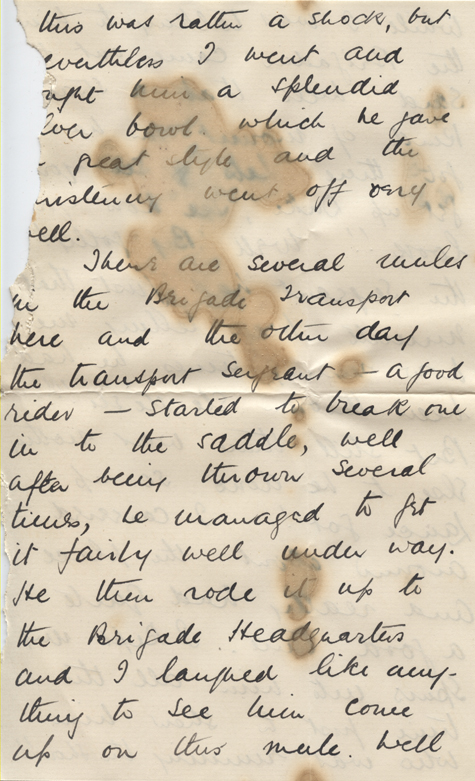 this was rather a shock, but
evertheless I went and
ught him a splendid
lver bowl which he gave
great style and the
ristening went off very
ell.
There are several mules
in the Brigade Transport
here and the other day
the transport Sergeant - a good
rider - started to break one
in to the saddle, well
after being thrown several
times, he managed to get
it fairly well under way.
He then rode it up to
the Brigade Headquarters
and I laughed like any-
thing to see him come
up on this mule. Well